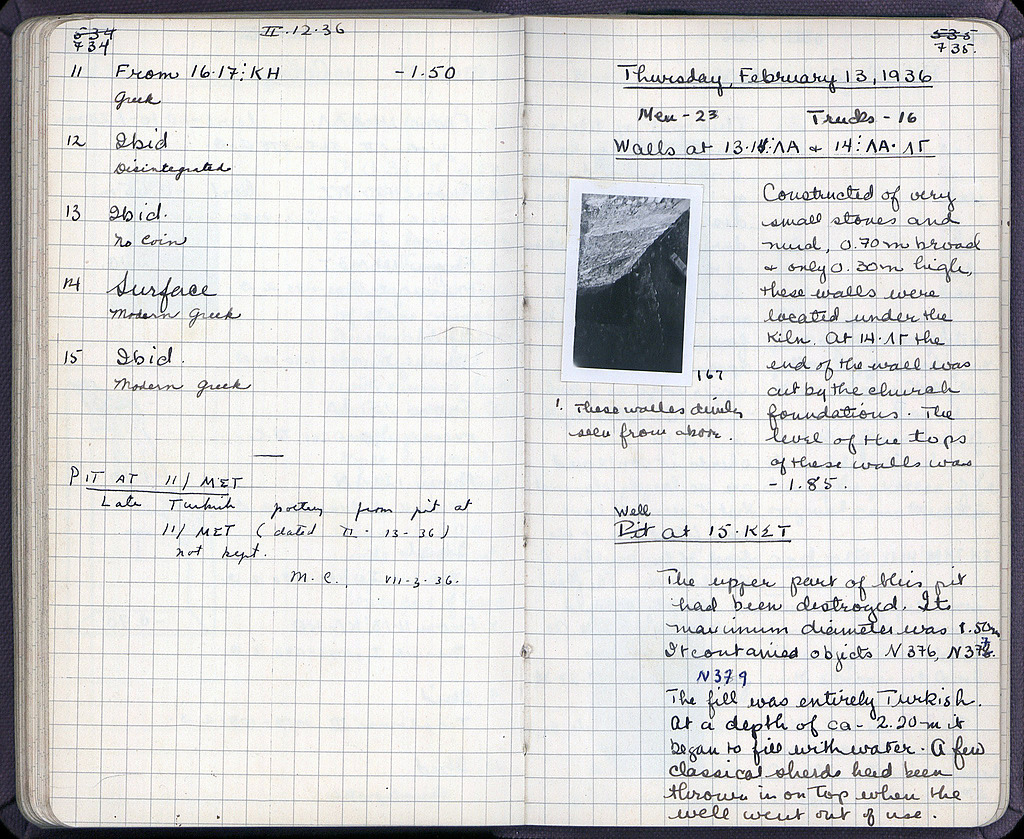 534
734
II.12.36
11 From 16.17:KH -1.50
Greek
12 Ibid
Disintegrated
13 Ibid.
No Coin
14 Surface
Modern Greek
15 Ibid.
Modern Greek
PIT AT 11/ΜΣΤ
Late Turkish pottery from pit at
11/ΜΣΤ (dated II-13-36)
not kept.
M.C. VII-3-36.
535
735.
Thursday, February 13, 1936
Men - 23 Trucks - 16
Walls at 13.14:ΛΑ & 14:ΛΑ.ΛΓ
Constructed of very
small stones and
mud, 0.70m broad
& only 0.30m high,
these walls were
located under the
Kiln. At 14.ΛΓ the
end of the wall was
cut by the church
foundations. The
level of the tops
of these walls was
-1.85.
167
1. These walls dimly
seen from above.
Well
Pit at 15.ΚΣΤ
The upper part of this pit
had been destroyed. Its
maximum diameter was 1.50m
It contained objects N376, N377.
N379
The fill was entirely Turkish.
At a depth of ca - 2.20m it
began to fill with water. A few
classical sherds had been
thrown in on top when the
well went out of use.